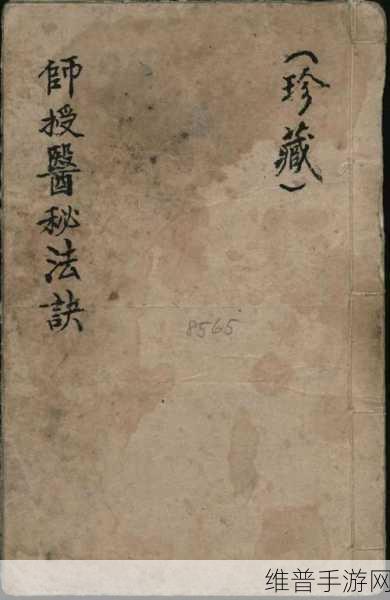 （珍藏）
師授醫秘法訣
8565
维普手游网